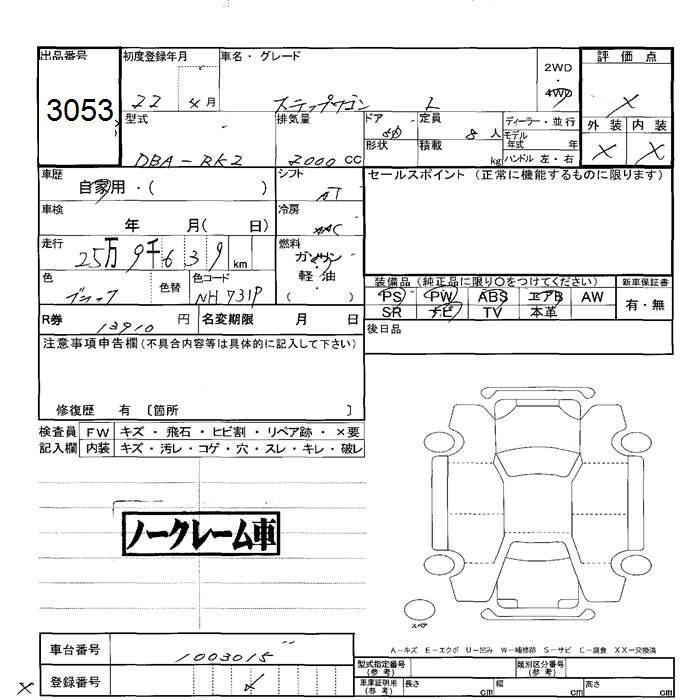 出品番号 初度登録年月 車名・グレード 2WD・4WD 評価点
3053 22 4月 ステップワゴン L X
型式 排気量 ドア 5D 定員 8人 ディーラー・並行 外装 内装
DBA-RK2 2000CC 形状 積載 kg モデル年式 年 X X
ハンドル 左・右
車歴 シフト セールスポイント (正常に機能するものに限ります)
自家用・( ) AT
車検 冷房
年 月( 日) AAC
走行 燃料
25万9千639km ガソリン・軽油
色 色替 色コード ( ) 装備品(純正品に限り○をつけてください) 新車保証書
ブラック NH731P PS PW ABS エアB AW 有・無
SR ナビ TV 本革
R券 13910円 名変期限 月 日
後日品
注意事項申告欄(不具合内容等は具体的に記入して下さい)
修復歴 有 〔箇所 〕
検査員 FW キズ・飛石・ヒビ割・リペア跡・×要
記入欄 内装 キズ・汚レ・コゲ・穴・スレ・キレ・破レ
ノークレーム車
スペア
A-キズ E-エクボ U-凹み W-補修跡 S-サビ C-腐食 XX-交換済
車台番号 1003015
型式指定番号(参考) 類別区分番号(参考)
登録番号
車庫証明用(参考) 長さ cm 幅 cm 高さ cm
X